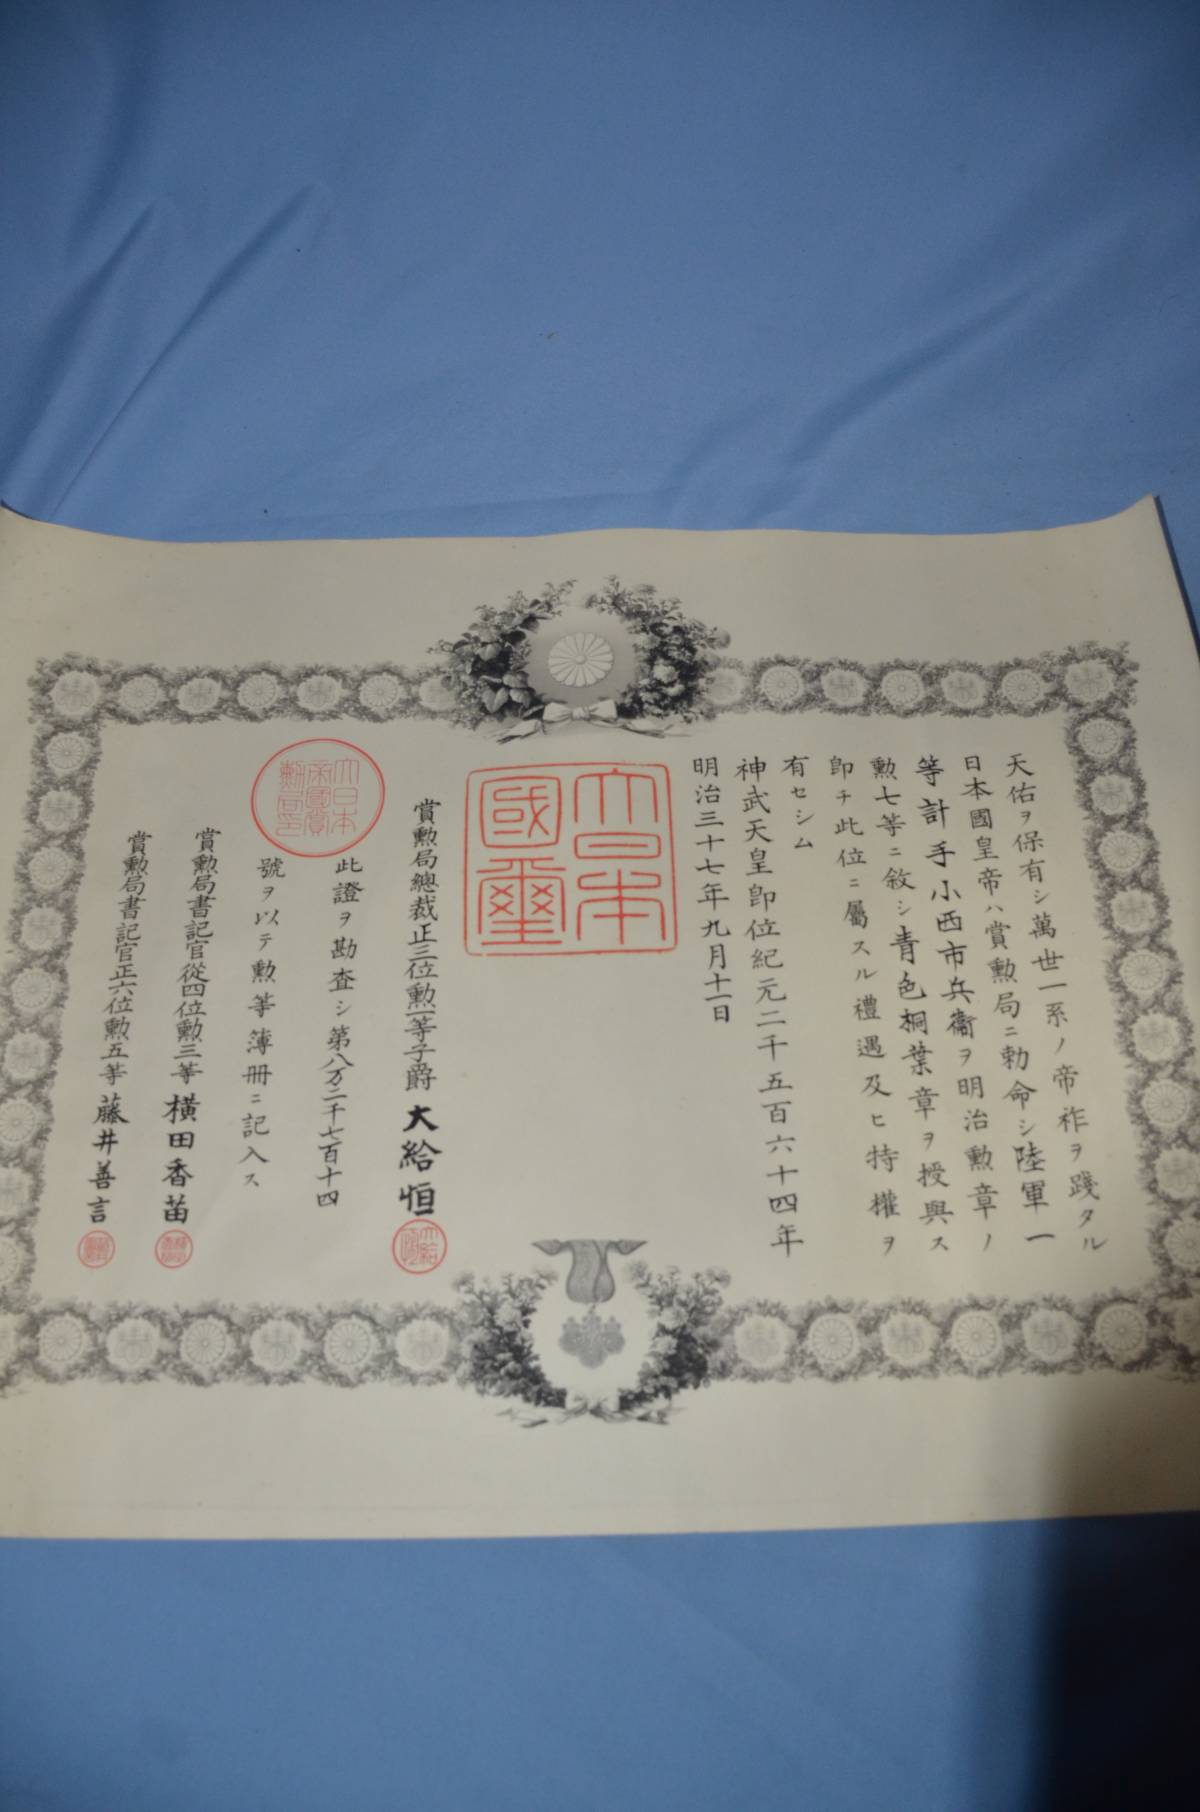 天佑ヲ保有シ萬世一系ノ帝祚ヲ踐タル
日本國皇帝ハ賞勲局ニ勅命シ陸軍一
等計手小西市兵衞ヲ明治勲章ノ
勲七等ニ敘シ青色桐葉章ヲ授與ス
即チ此位ニ屬スル禮遇及ヒ特權ヲ
有セシム
神武天皇即位紀元二千五百六十四年
明治三十七年九月十一日
大日本
國璽
賞勲局總裁正三位勲一等子爵大給恒
大給恒
此證ヲ勘査シ第八万二千七百十四
號ヲ以テ勲等簿冊ニ記入ス
大日本
帝國賞
勲局印
賞勲局書記官從四位勲三等横田香苗
賞勲局書記官正六位勲五等藤井善言